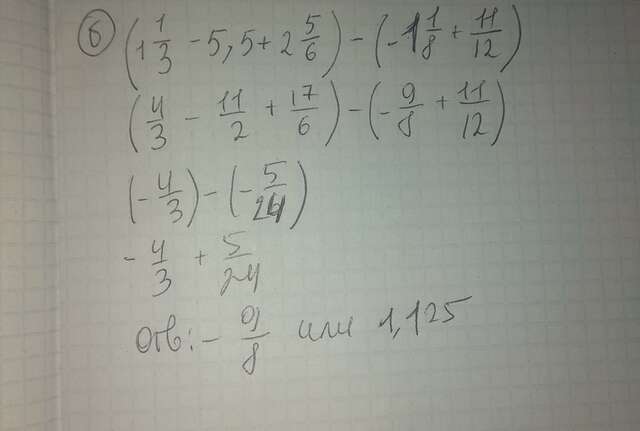 6 (1 1/3 - 5,5 + 2 5/6) - (-1 1/8 + 11/12)
(4/3 - 11/2 + 17/6) - (-9/8 + 11/12)
(-4/3) - (-5/24)
- 4/3 + 5/24
Отв: - 9/8 или 1,125